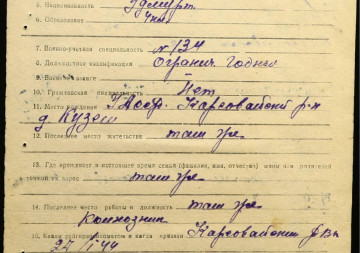 5. Национальность Удмурт
6. Образование 4 кл
7. Военно-учетная специальность № 134
8. Должностная квалификация Огранич. годный
9. Воинское звание
10. Гражданская специальность Нет
11. Место рождения УАССР. Карсовайский р-н
д. Кузеш
12. Последнее место жительства там же
13. Где проживает в настоящее время семья (фамилия, имя, отчество) жены или родителей
точный их адрес там же
14. Последнее место работы и должность там же
Колхозник
15. Каким райгорвоенкоматом и когда призван Карсовайским РВК
27/I-44